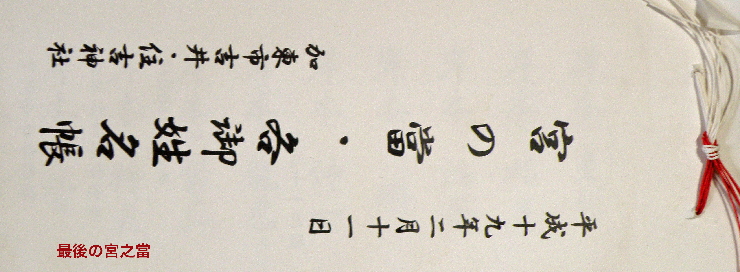 平成十九年二月十一日
宮の當・各御姓名帳
加東市吉井・住吉神社
最後の宮之當